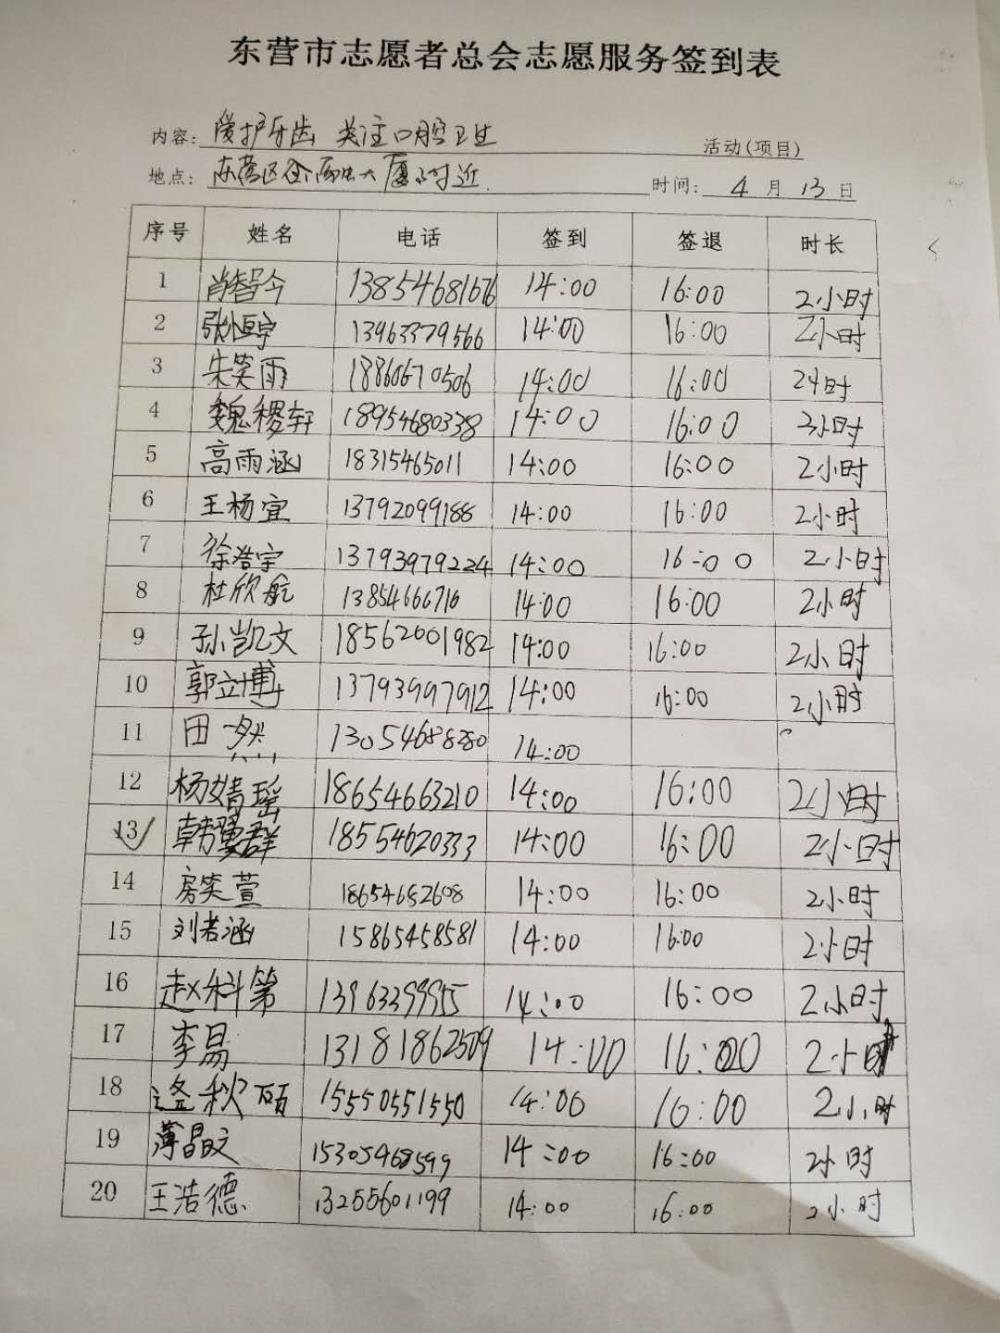 东营市志愿者总会志愿服务签到表
内容: 爱护牙齿 关注口腔卫生 活动(项目)
地点: 东营区 大厦附近 时间: 4 月 13 日
序号 姓名 电话 签到 签退 时长
1 肖智今 13854681676 14:00 16:00 2小时
2 张恒宇 13963379566 14:00 16:00 2小时
3 朱笑雨 18860670506 14:00 16:00 2小时
4 魏稷轩 18954680338 14:00 16:00 2小时
5 高雨涵 18315465011 14:00 16:00 2小时
6 王杨宜 13792099188 14:00 16:00 2小时
7 徐浩宇 13793979224 14:00 16:00 2小时
8 杜欣航 13854666716 14:00 16:00 2小时
9 孙凯文 18562001982 14:00 16:00 2小时
10 郭立博 13793997912 14:00 16:00 2小时
11 田 燃 13054688280 14:00
12 杨婧瑶 18654663210 14:00 16:00 2小时
13 韩翼群 18554620333 14:00 16:00 2小时
14 房笑萱 18654652608 14:00 16:00 2小时
15 刘若涵 15865458581 14:00 16:00 2小时
16 赵科第 13963399955 14:00 16:00 2小时
17 李易 13181862509 14:00 16:00 2小时
18 逄秋硕 15550551550 14:00 16:00 2小时
19 薄晶文 15305468599 14:00 16:00 2小时
20 王浩德 13255601199 14:00 16:00 2小时